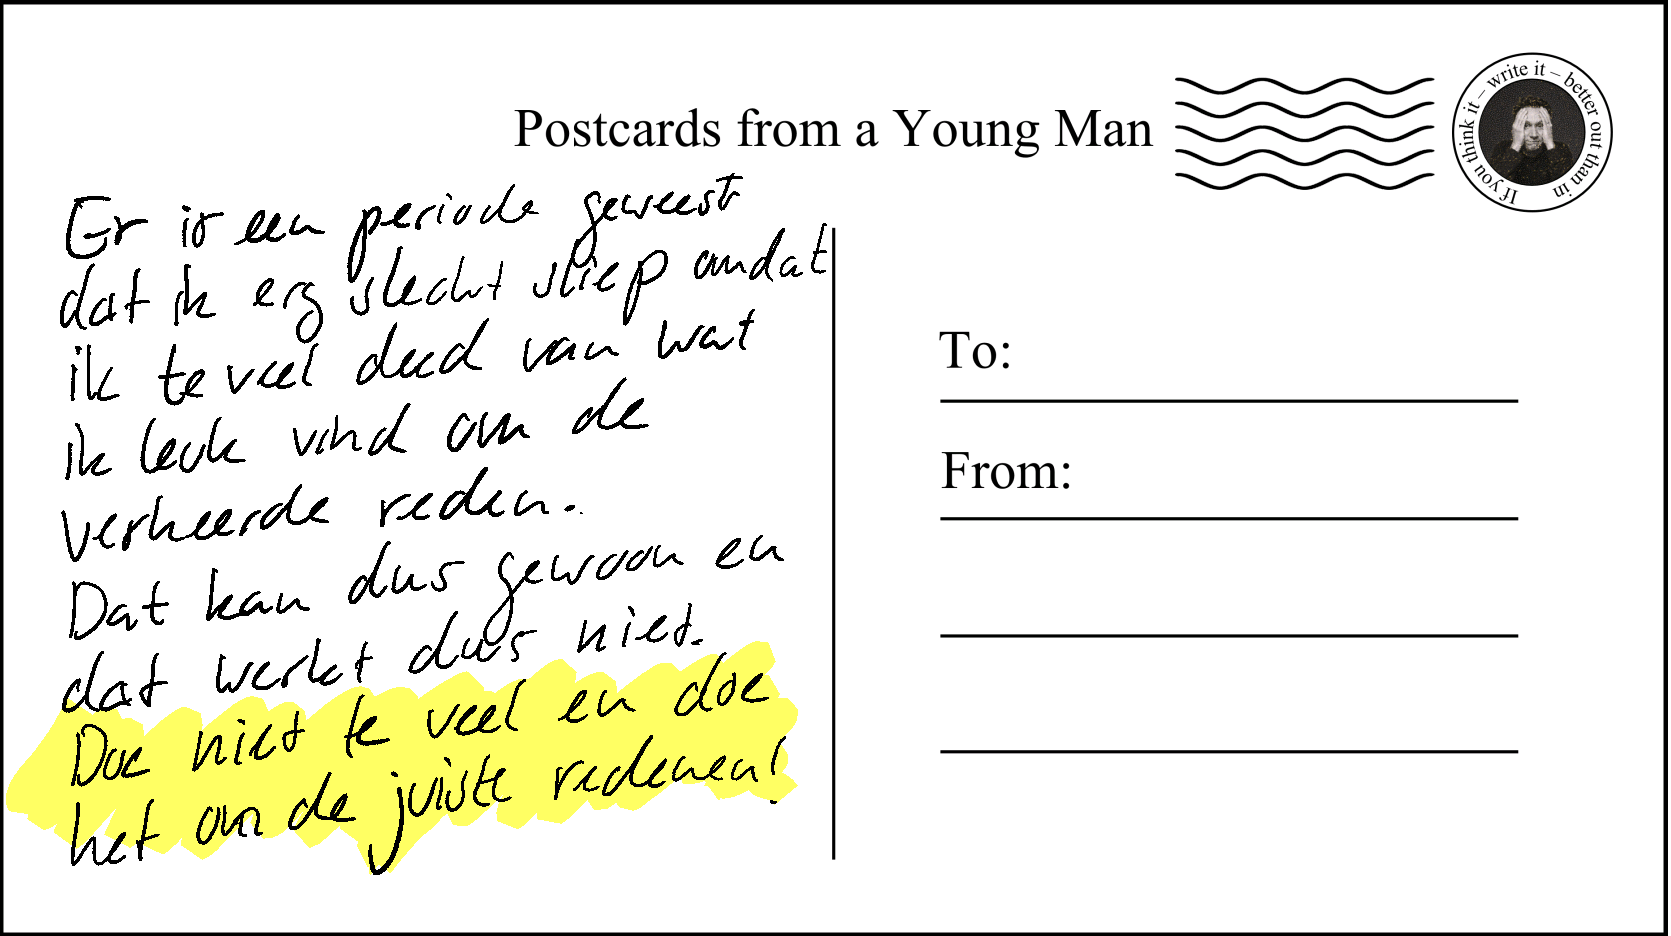 Postcards from a Young Man
If you think it – write it – better out than in
Er is een periode geweest
dat ik erg slecht sliep omdat
ik te veel deed van wat
ik leuk vind om de
verkeerde reden.
Dat kan dus gewoon en
dat werkt dus niet.
Doe niet te veel en doe
het om de juiste redenen!
To:
From: